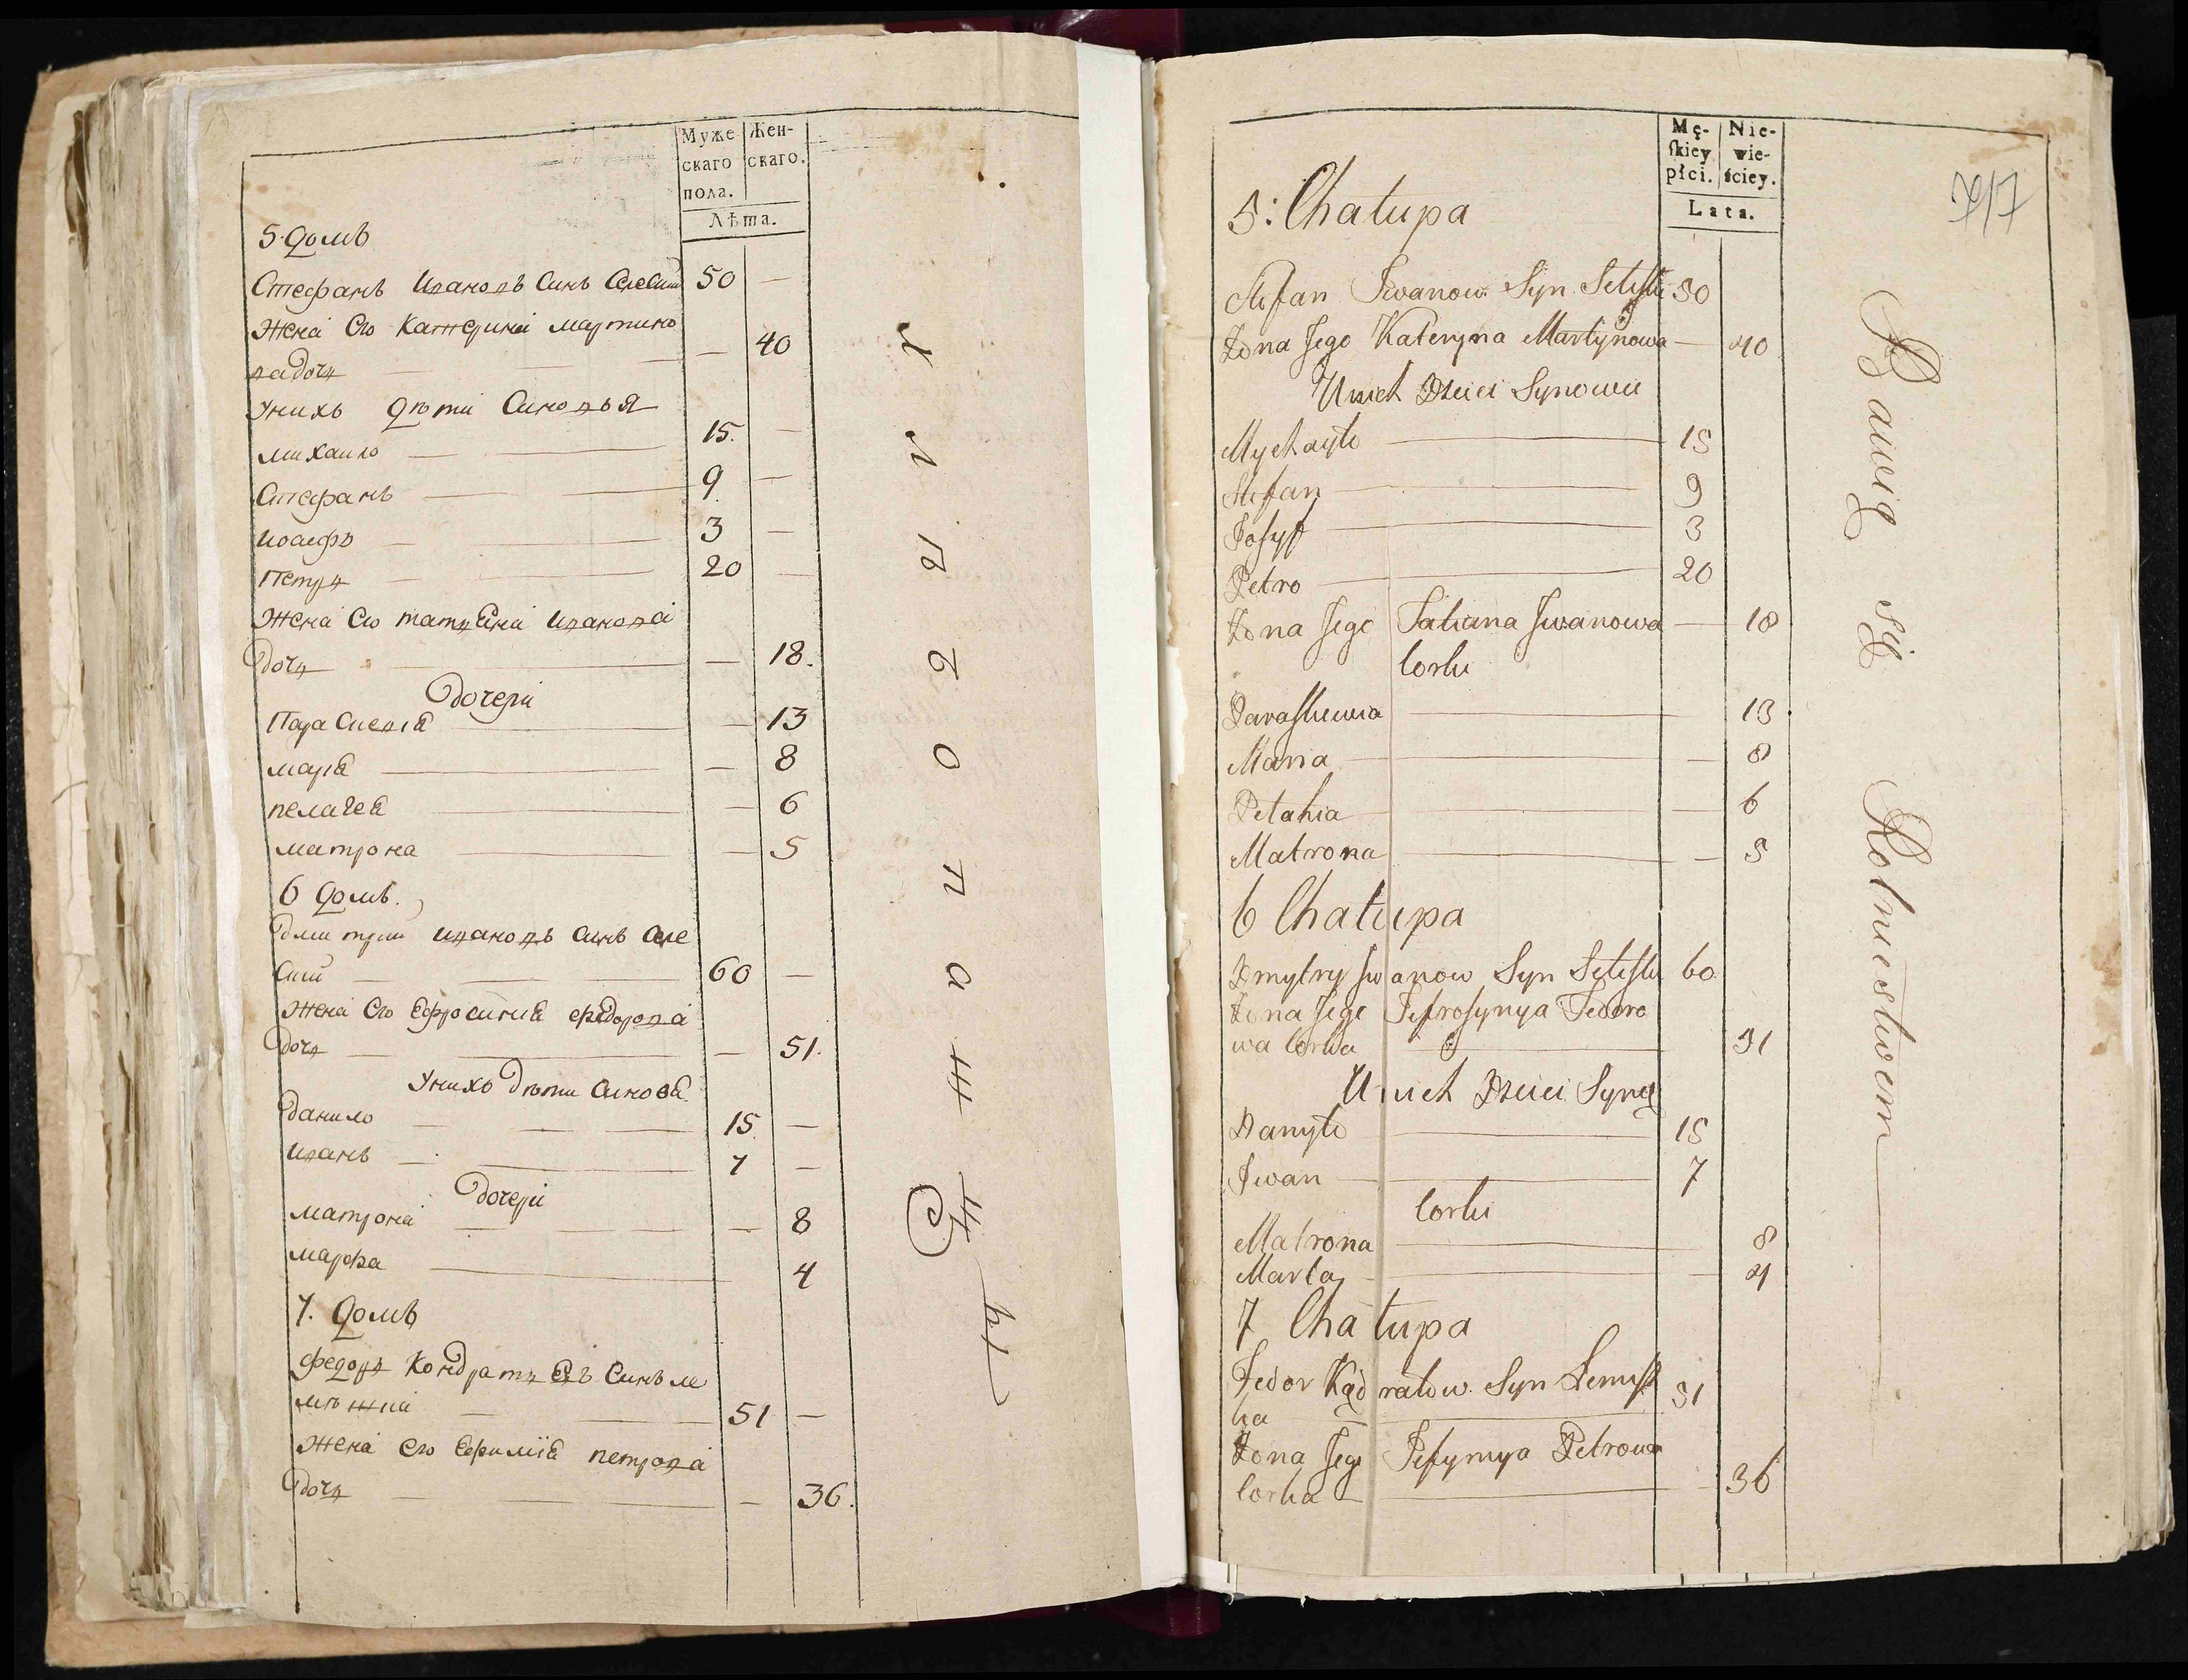 Муже
скаго
пола.
Жен-
скаго.
Лѣта.
5. домъ
Стефанъ Ивановъ Синъ Селеский 50 —
Жена Его Катерина Мартино
ва дочъ — 40
У нихъ дѣти Синовья
михаило 15. —
Стефанъ 9 —
иосифъ 3 —
Петръ 20 —
Жена Его татъяна Иванова
дочъ — 18.
дочери
Параскевия — 13
мария — 8
пелагея — 6
матрона — 5
6 домъ.
дмитрий Ивановъ Синъ Селе
ский 60 —
Жена Его Ефросиния федорова
дочъ — 51.
У нихъ дѣти Синовя
данило 15 —
Иванъ 7 —
дочери
матрона — 8
марфа — 4
7. домъ
федоръ Кондратъевъ Синъ
51 —
Жена Его Ефимия петрова
дочъ — 36.
Mę-
ſkiey
płci.
Nie-
wie-
ściey.
Lata.
7/7
5: Chałupa
Stefan Iwanow Syn 50
Żona Jego Kateryna Martynowa — 40
U nich Dzieci Synowie
Mychayło 15
Stefan 9
Josyf 3
Petro 20
Żona Jego Tatiana Iwanowa — 18
Corki
Paraskewia 13
Maria — 8
Pelahia — 6
Matrona — 5
6 Chałupa
Dmytry Iwanow Syn 60
Żona Jego Jefrosynya Fedoro
wa Corka 51
U nich Dzieci Syny
Danyło 15
Iwan 7
Corki
Matrona 8
Marta — 4
7 Chałupa
Fedor Kądratow Syn
ka 51
Żona Jego Jefymya Petrowa
Corka — 36
Bawią się Rolnictwem